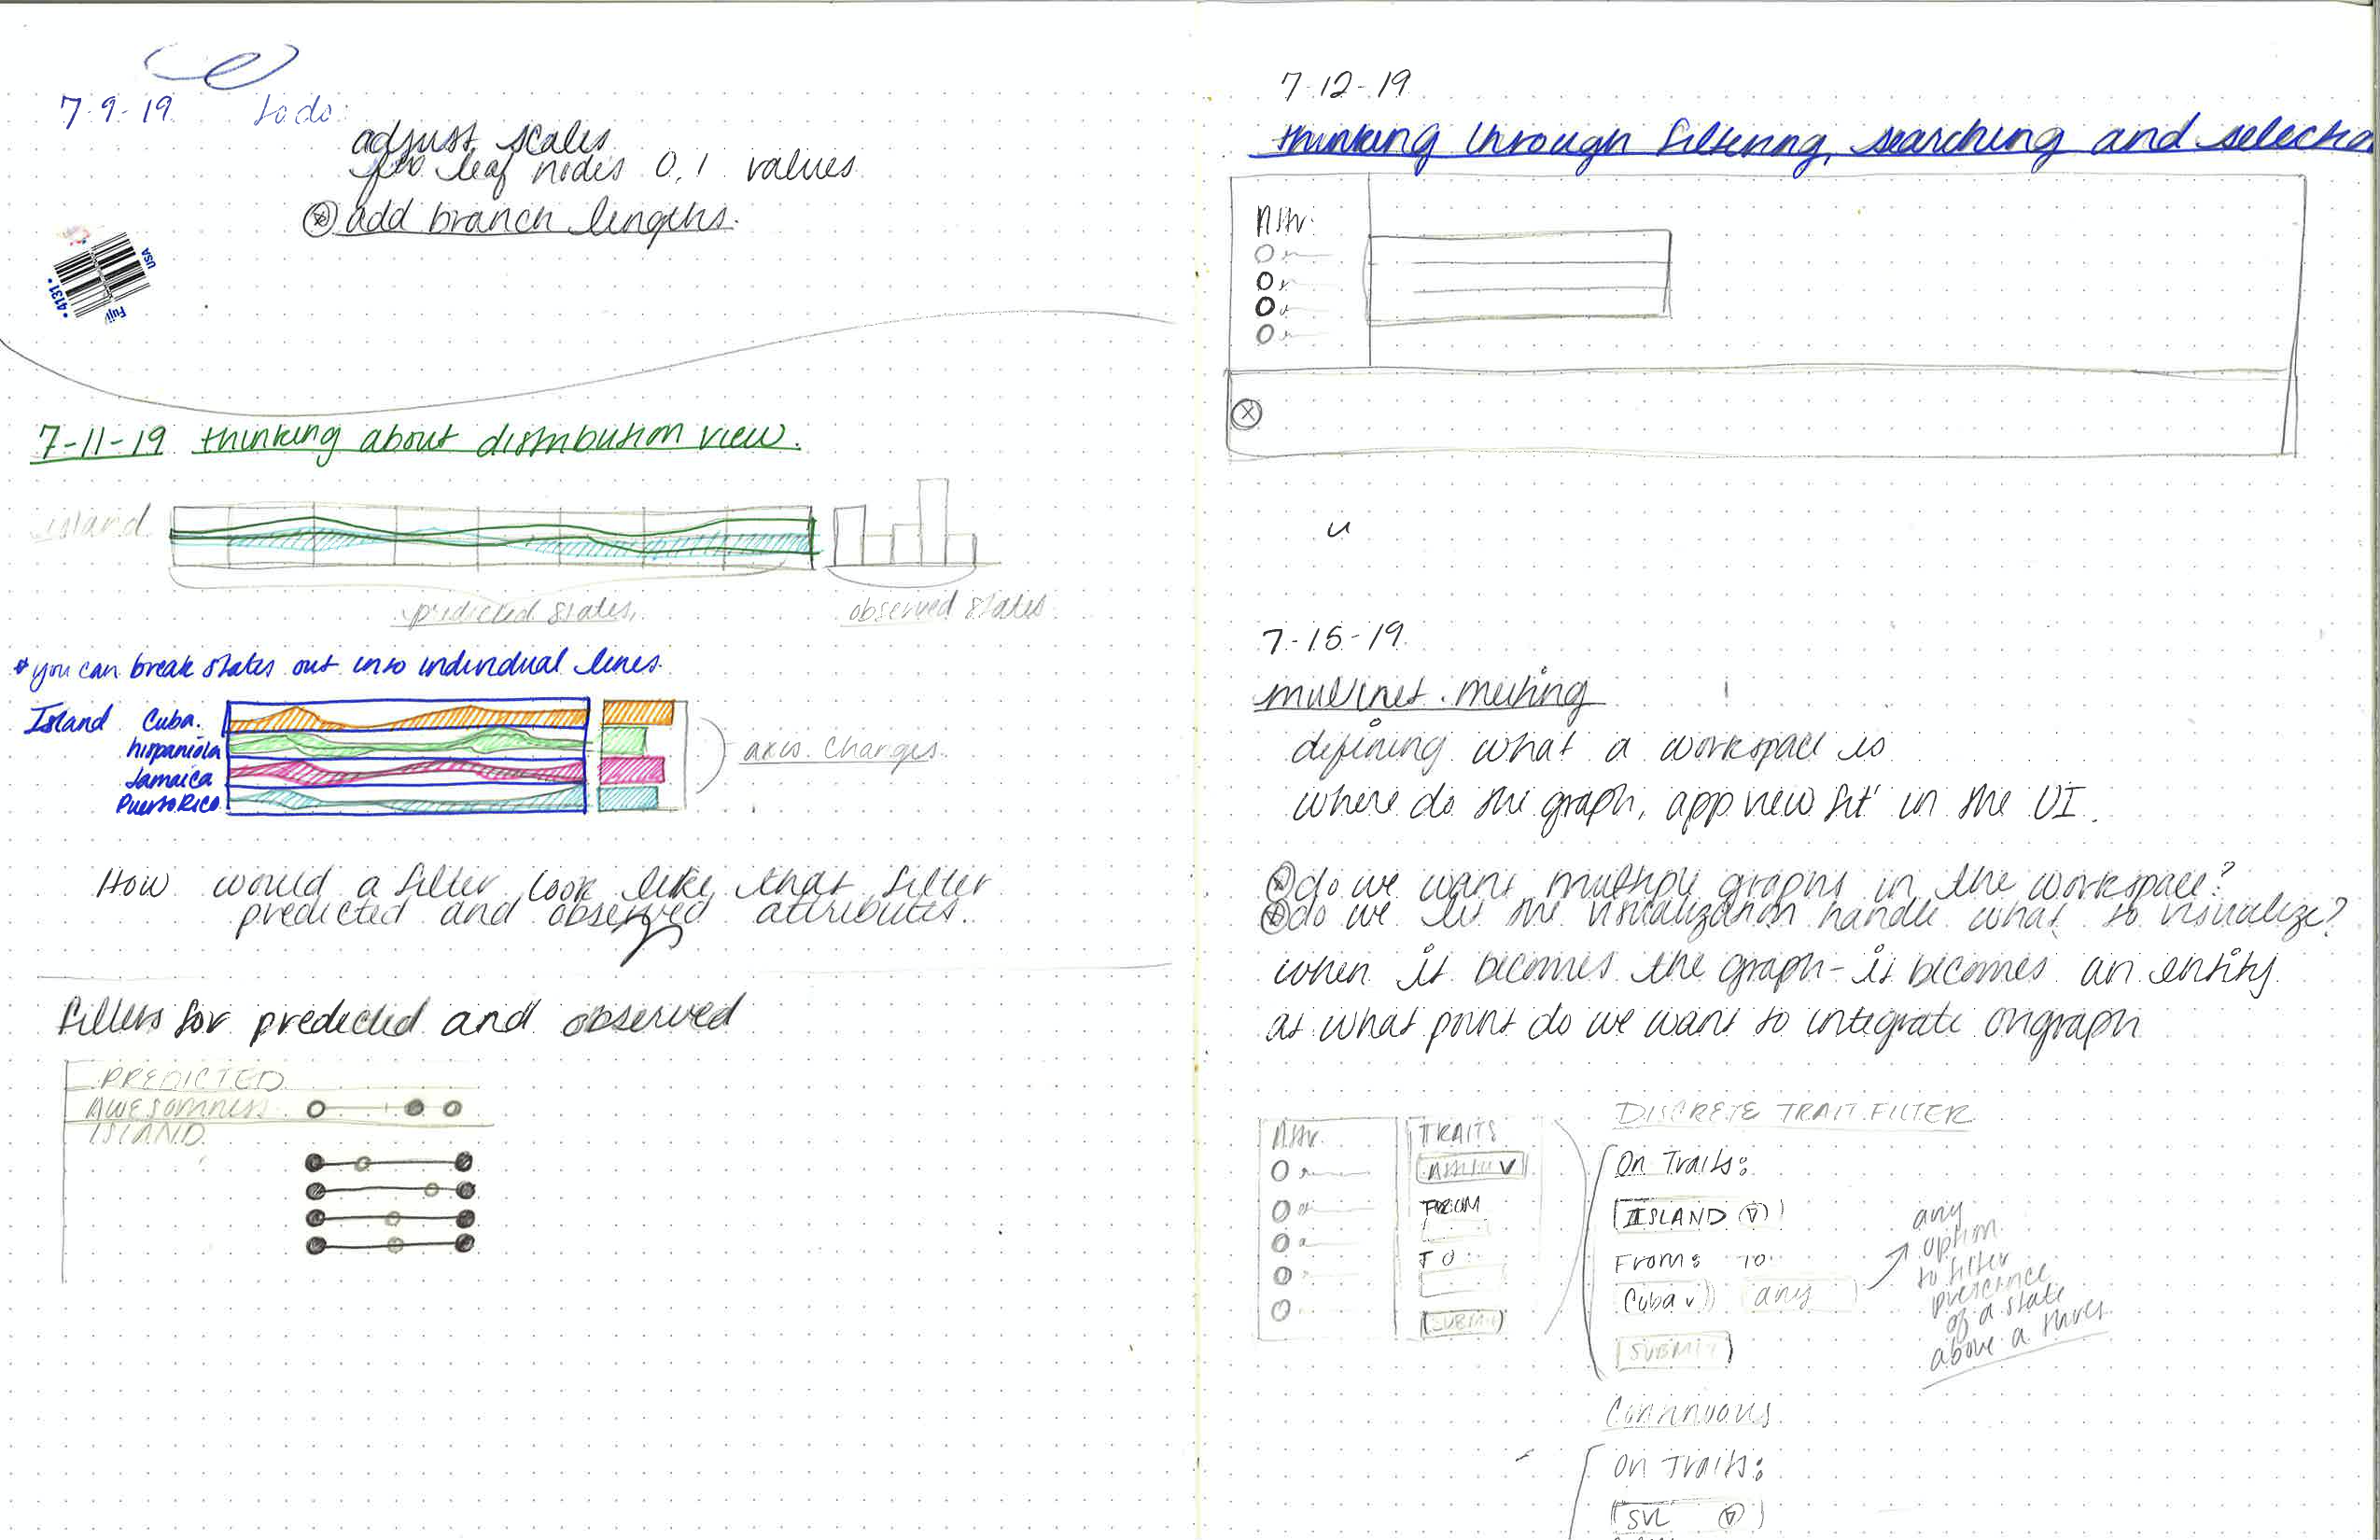 7-9-19 to do:
adjust scales
leaf nodes 0,1 values
add branch lengths.
USA
4131
Fuji
7-11-19 thinking about distribution view.
island
predicted states,
observed states
* you can break states out into individual lines.
Island Cuba.
hispaniola
Jamaica
Puerto Rico
axis changes.
How would a filter look like that filter
predicted and observed attributes.
filters for predicted and observed
PREDICTED
AWESOMNESS
ISLAND
7-12-19
thinking through filtering, searching and selectio
Attr.
u
7-15-19
multinet meeting
defining what a workspace is
where do the graph, app view fit in the UI.
do we want multiple graphs in the workspace?
do we let the visualization handle what to visualize?
when it becomes the graph - it becomes an entity.
at what point do we want to integrate ongraph
Attr.
TRAITS
FROM
TO:
SUBMIT
DISCRETE TRAIT FILTER
On Traits:
ISLAND
From: To:
Cuba v any
SUBMIT
any
option
to filter
prescence
of a state
above a thres
Continuous
On Traits:
SVL